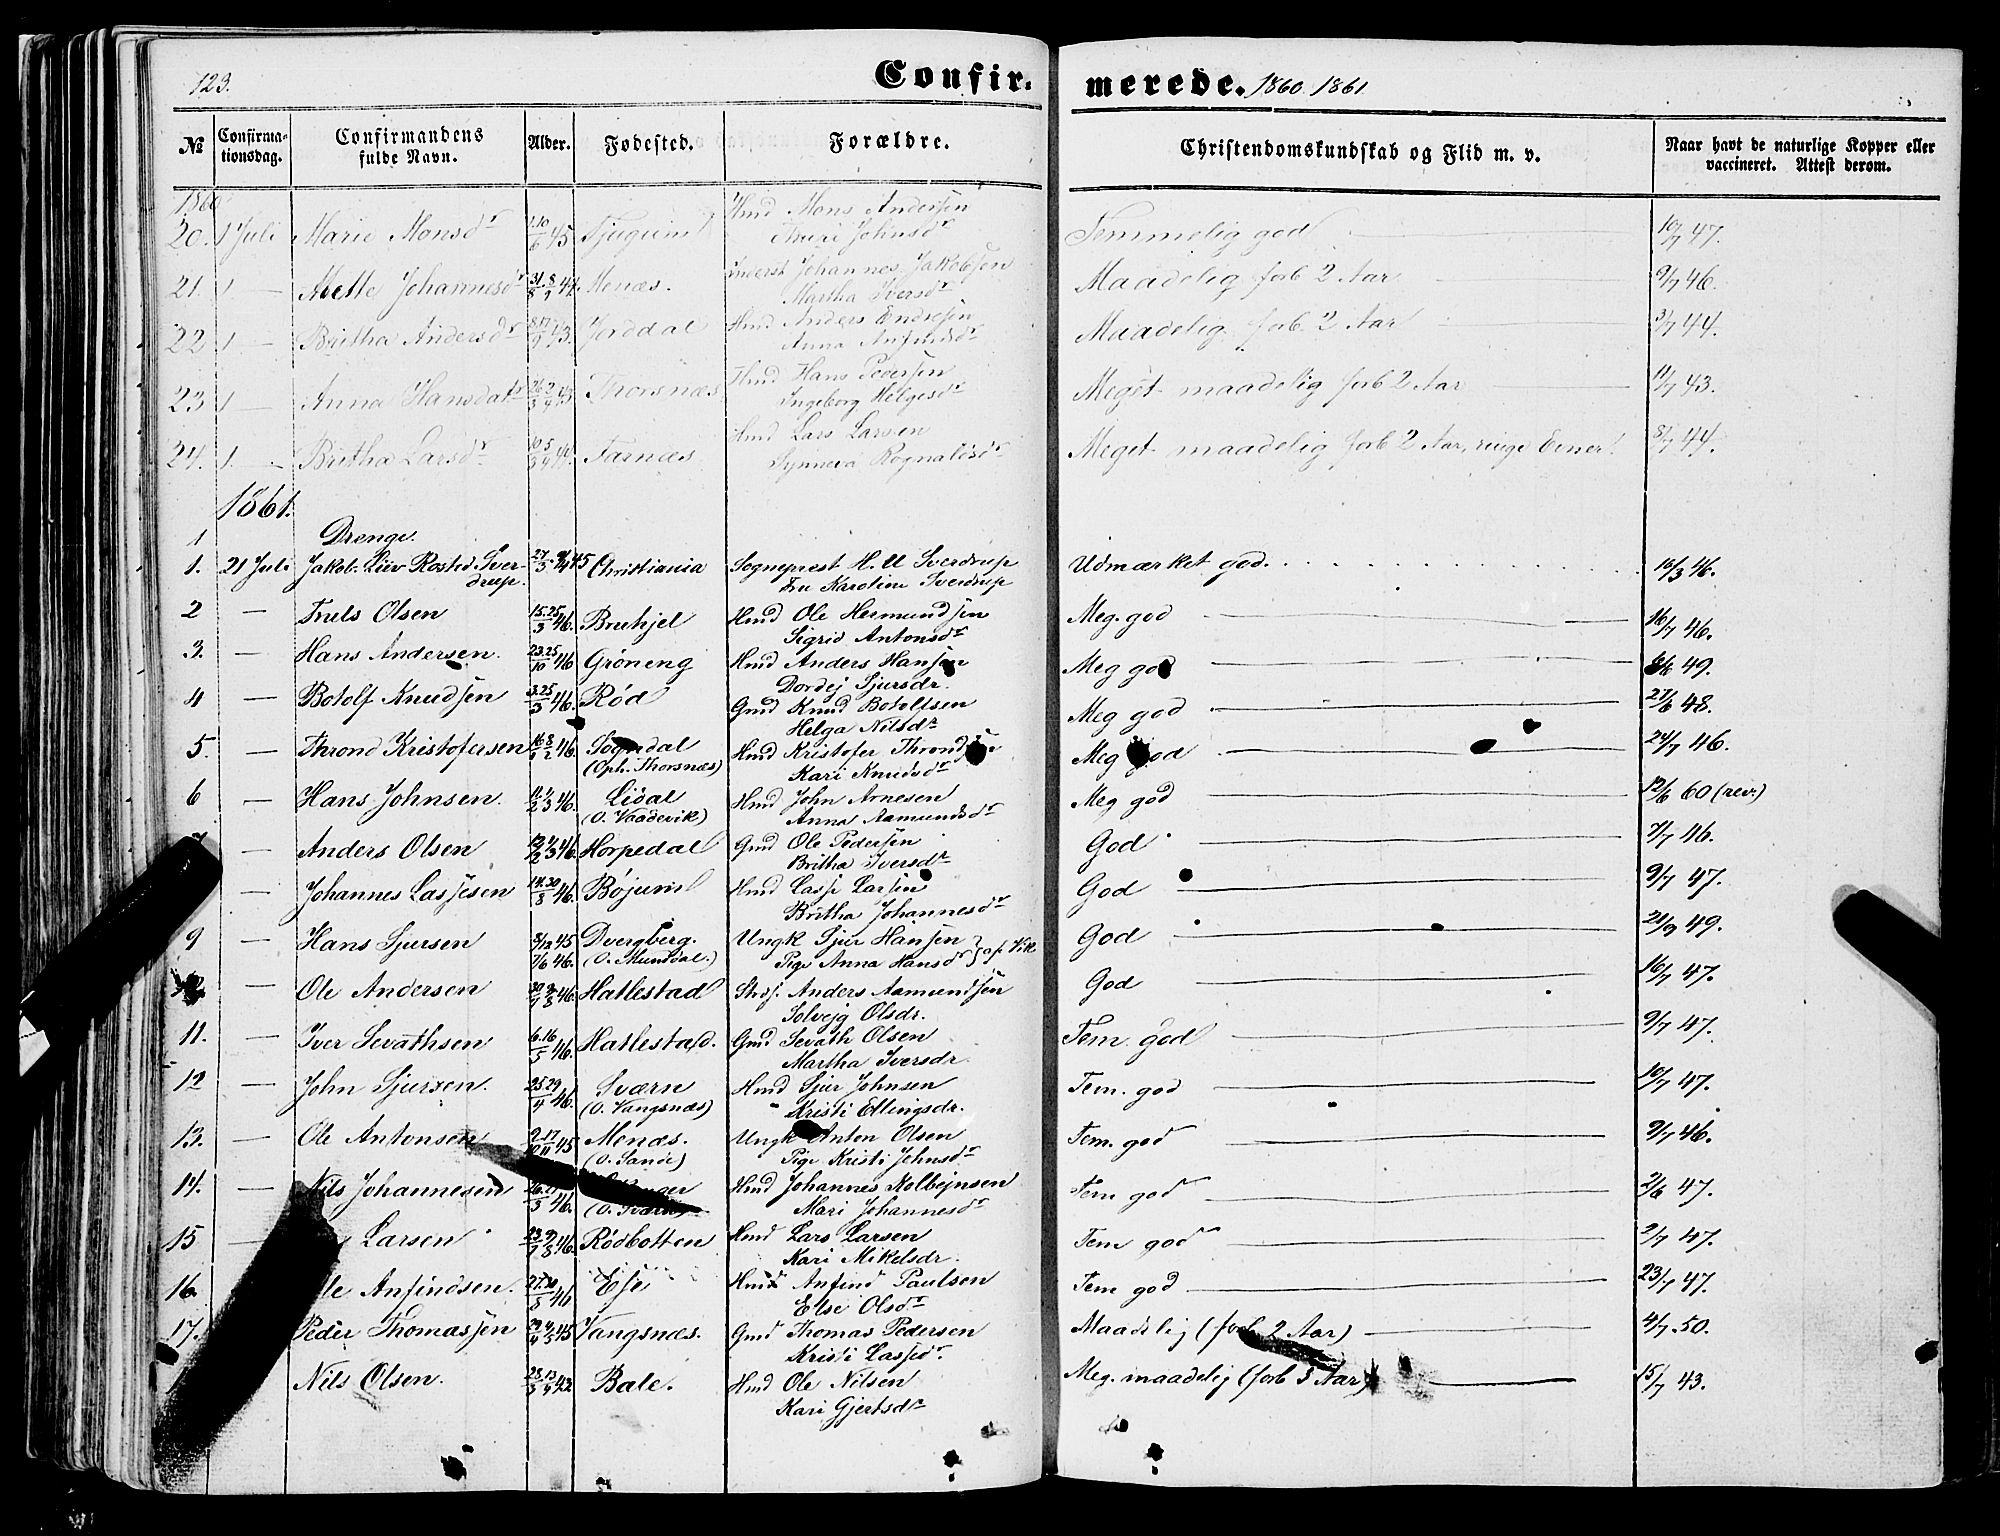 123.
Confir-merede. 1860. 1861
№ Confirma-tionsdag. Confirmandens fulde Navn. Alder. Fødested. Forældre. Christendomskundskab og Flid m. v. Naar havt de naturlige Kopper eller vaccineret. Attest derom.
1860
20. 1 Juli Marie Monsdr 45 Tjugum Hmd Mons Andersen Thuri Johnsdr Temmelig god 10/7 47.
21. 1 — Mette Johannesdr 44. Menæs. Inderst Johannes Jakobsen Martha Iversdr Maadelig forb 2 Aar 9/7 46.
22 1 — Britha Andersdr 43. Jorddal Hmd Anders Endresen Anna Anfindsdr Maadelig forb. 2 Aar 3/7 44.
23 1 — Anna Hansdatr 43 Thorsnæs Hmd Hans Pedersen Ingeborg Helgesdr Meget maadelig forb 2 Aar 11/7 43.
24. 1. — Britha Larsdr 44. Farnæs Hmd Lars Larsen Synneva Rognaldsdr Meget maadelig forb 2 Aar, ringe Evner! 8/7 44.
1861.
1 Drenge.
1. 21 Juli Jakob Liiv Rosted Sver-drup. 27/3 45 Christiania Sogneprest H. U Sverdrup Fru Karoline Sverdrup Udmærket god. 16/3 46.
2 — Truls Olsen 15.25/3 46. Bruhjel Hmd Ole Hermundsen Sigrid Antonsdr Meg. god 16/7 46.
3. — Hans Andersen. 23.25/10 46 Grøneng Hmd Anders Hansen Dordej Sjursdr. Meg god 49.
4 — Botolf Knudsen 3.25/3 46. Rød Gmd Knud Botolfsen Helga Nilsdr Meg god 27/6 48.
5. — Thrond Kristofersen 46. Sogndal (Oph. Thorsnæs) Hmd Kristofer Throndsen Kari Knudsdr Meg god 24/7 46.
6 — Hans Johnsen. 46. Lidal (O. Vaadevik) Hmd John Arnesen Anna Aamundsdr Meg god 12/6 60 (rev.)
— Anders Olsen 46. Horpedal Gmd Ole Pedersen Britha Iversdr God 7/7 46.
— Johannes Lassesen 14.30/8 46. Bøjum Hmd Lasse Larsen Britha Johannesdr God 9/7 47.
9 — Hans Sjursen 8/12 45 7/6 46. Dvergberg. (O. Mundal.) Ungk Sjur Hansen Pige Anna Hansdr } af Vik God 21/9 49.
— Ole Andersen 46. Hatlestad Strs. Anders Aamundsen Solvejg Olsdr. God 16/7 47.
11. — Iver Sevathsen 6.16/5 46. Hatlestad. Gmd Sevath Olsen Martha Iversdr. Tem. god 9/7 47.
12 — John Sjursen. 25.29/4 46. Sværn (O. Vangsnæs) Hmd Sjur Johnsen Kristi Ellingsdr. Tem. god 10/7 47.
13. — Ole Antonsen 45 Menæs. (O. Sande) Ungk Anton Olsen Pige Kristi Johnsdr Tem. god 9/7 46.
14. — Nils Johannesen 46. Hmd Johannes Kolbejnsen Mari Johannesdr Tem god 2/6 47.
15 — Larsen 46. Rødbotten Hmd Lars Larsen Kari Mikelsdr. Tem god 2/7 47.
16. Anfindsen. 46 Ese Hmd Anfind Paulsen Else Olsdr Tem god 23/7 47.
17. Peder Thomassen 45 Vangsnæs. Gmd Thomas Pedersen Kristi Lassedr. Maadelig (forb. 2 Aar) 4/7. 50.
Nils Olsen. 43. Bale. Hmd Ole Nilsen Kari Gjertsdr Meg. maadelig (forb 3 Aar) 15/7 43.